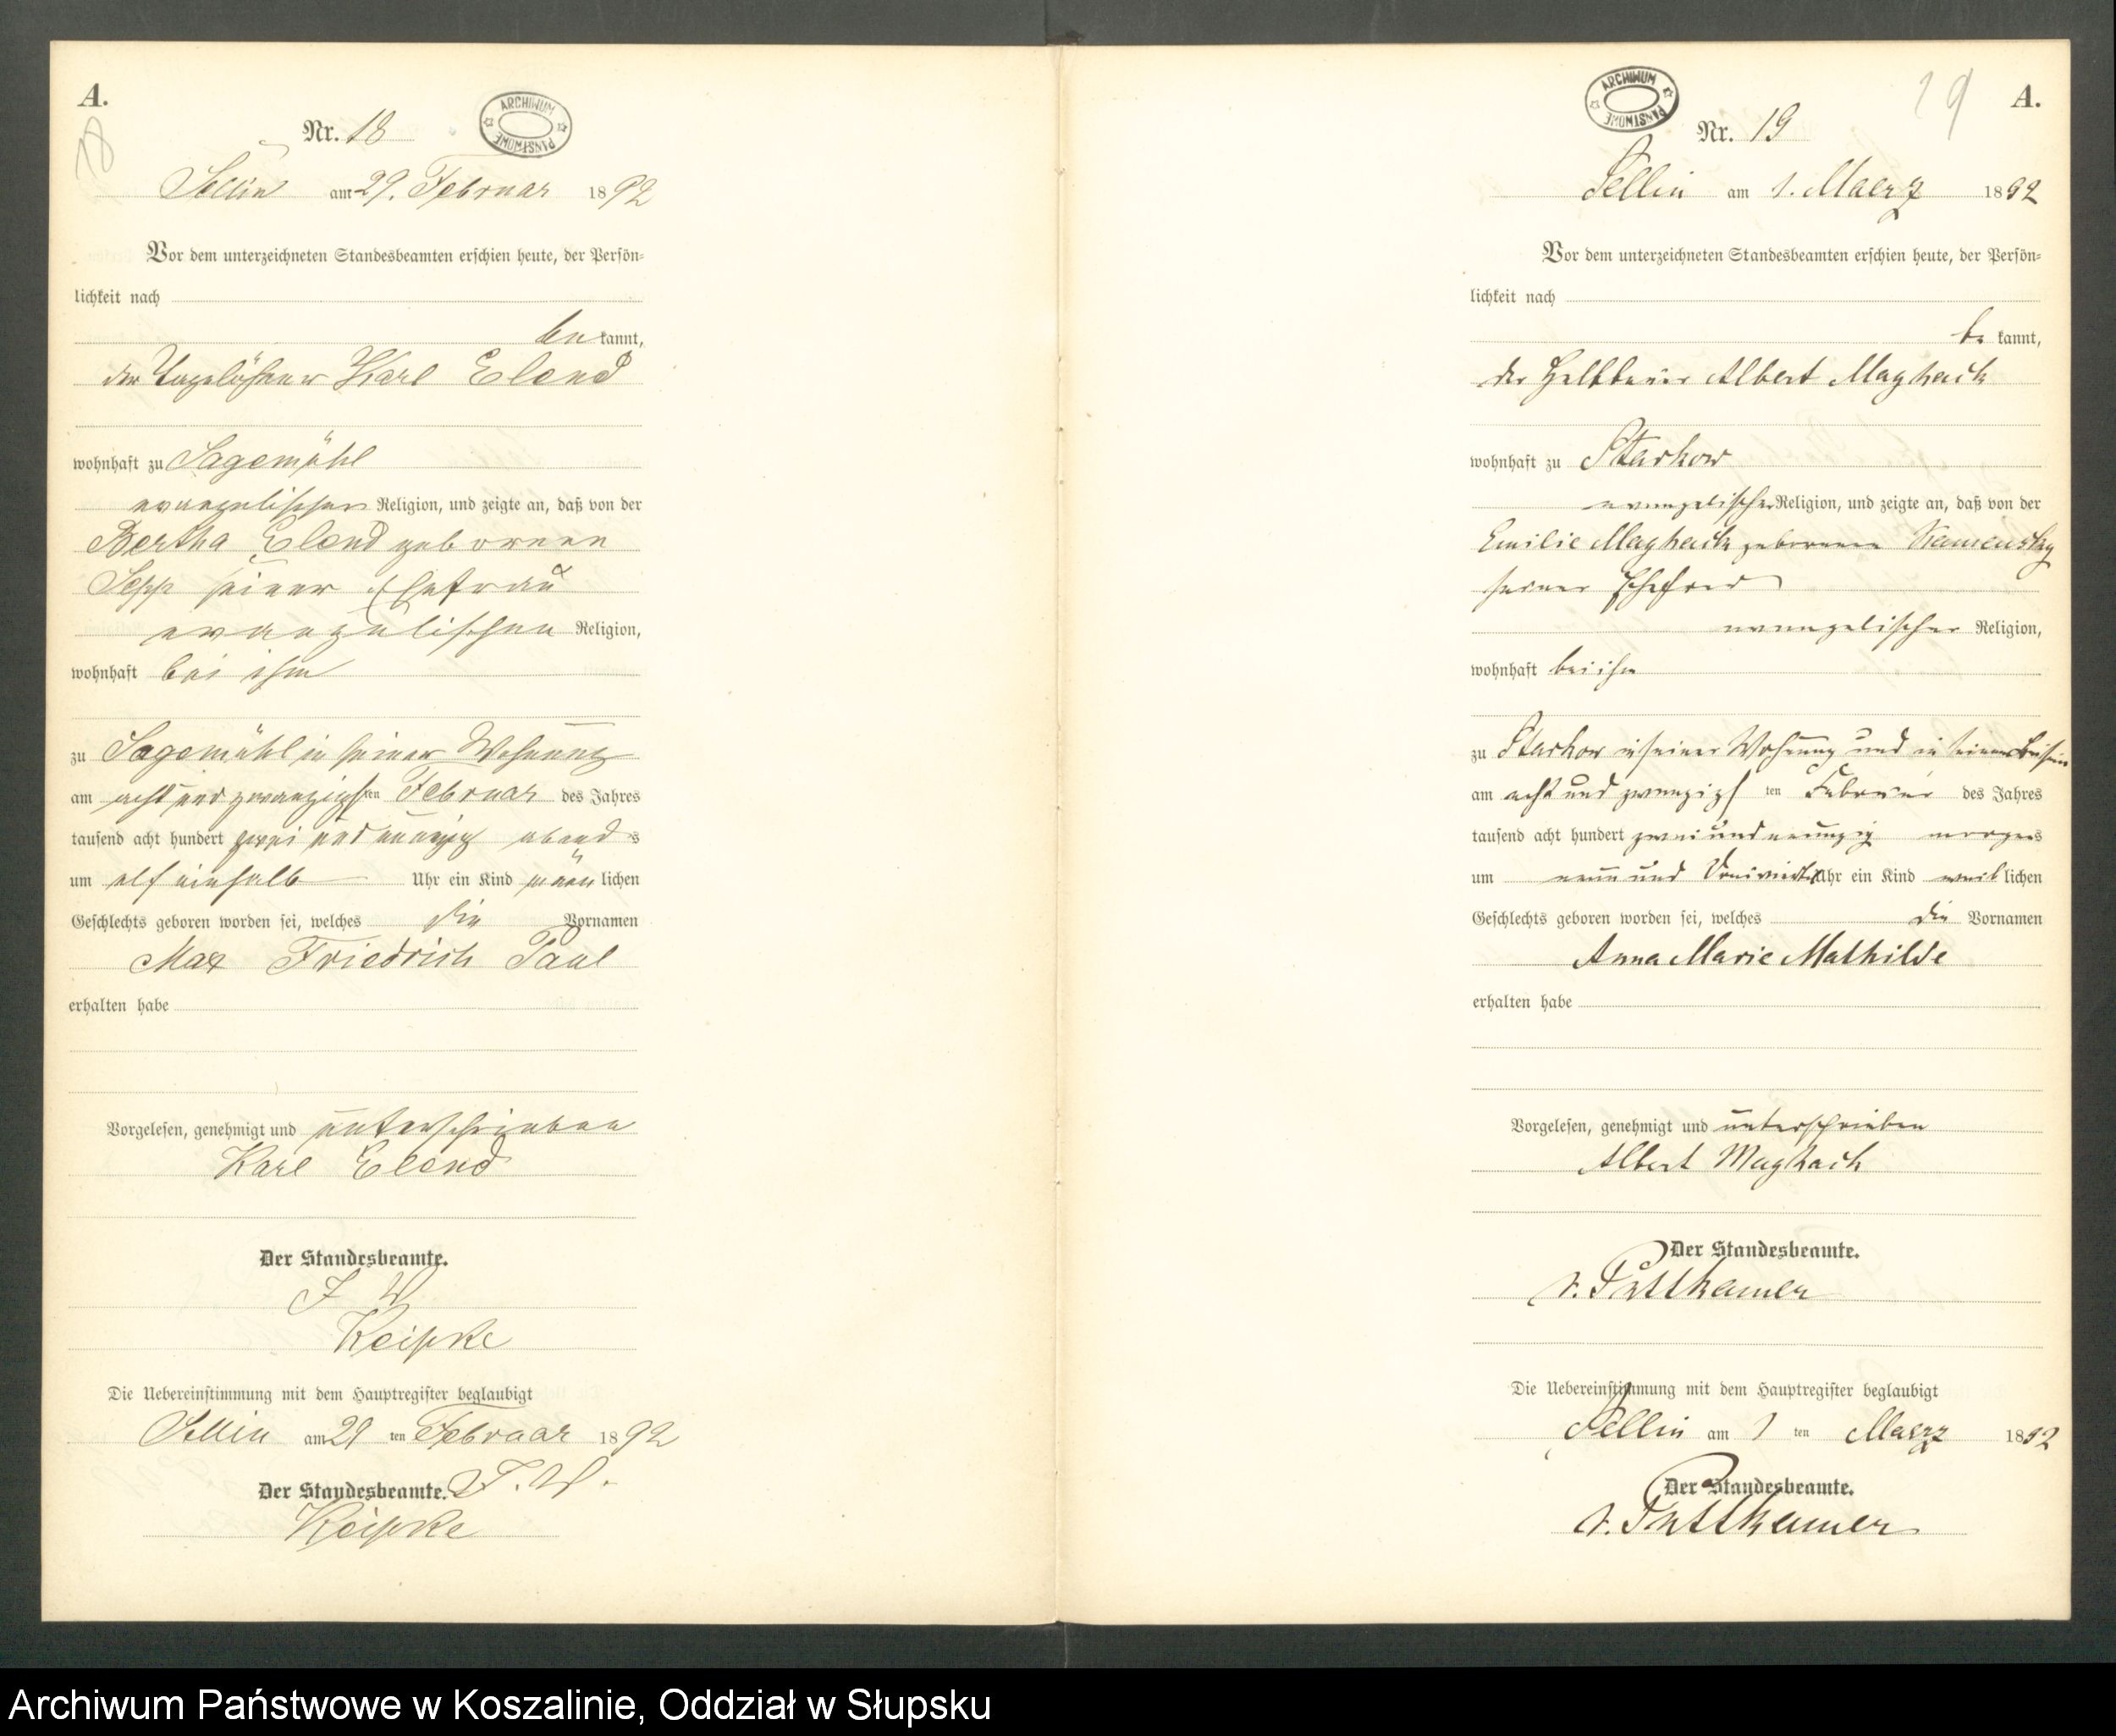 A.
18
Nr. 18
ARCHIWUM PAŃSTWOWE
Sellin am 29. Februar 1892
Vor dem unterzeichneten Standesbeamten erschien heute, der Persön-
lichkeit nach
be kannt,
der Tagelöhner Karl Elend
wohnhaft zu Sagemühl
evangelischer Religion, und zeigte an, daß von der
Bertha Elend geborenen
seiner Ehefrau
evangelischen Religion,
wohnhaft bei ihm
zu Sagemühl in seiner Wohnung
am acht und zwanzigsten Februar des Jahres
tausend acht hundert zwei und neunzig abends
um elf einhalb Uhr ein Kind männlichen
Geschlechts geboren worden sei, welches die Vornamen
Max Friedrich Paul
erhalten habe
Vorgelesen, genehmigt und unterschrieben
Karl Elend
Der Standesbeamte.
J W
Keipke
Die Uebereinstimmung mit dem Hauptregister beglaubigt
Sellin am 29 ten Februar 1892
Der Standesbeamte. J. W.
Keipke
19
A.
ARCHIWUM PAŃSTWOWE
Nr. 19
Sellin am 1. Maerz 1892
Vor dem unterzeichneten Standesbeamten erschien heute, der Persön-
lichkeit nach
be kannt,
der Halbbauer Albert Maghack
wohnhaft zu Starkow
evangelischer Religion, und zeigte an, daß von der
Emilie Maghack geborenen Kamensky
seiner Ehefrau
evangelischer Religion,
wohnhaft bei ihm
zu Starkow in seiner Wohnung und in seinem Beisein
am acht und zwanzigsten Februar des Jahres
tausend acht hundert zwei und neunzig morgens
um neun und dreiviertel Uhr ein Kind weiblichen
Geschlechts geboren worden sei, welches die Vornamen
Anna Marie Mathilde
erhalten habe
Vorgelesen, genehmigt und unterschrieben
Albert Maghack
Der Standesbeamte.
v. Puttkamer
Die Uebereinstimmung mit dem Hauptregister beglaubigt
Sellin am 1 ten Maerz 1892
Der Standesbeamte.
v. Puttkamer
Archiwum Państwowe w Koszalinie, Oddział w Słupsku